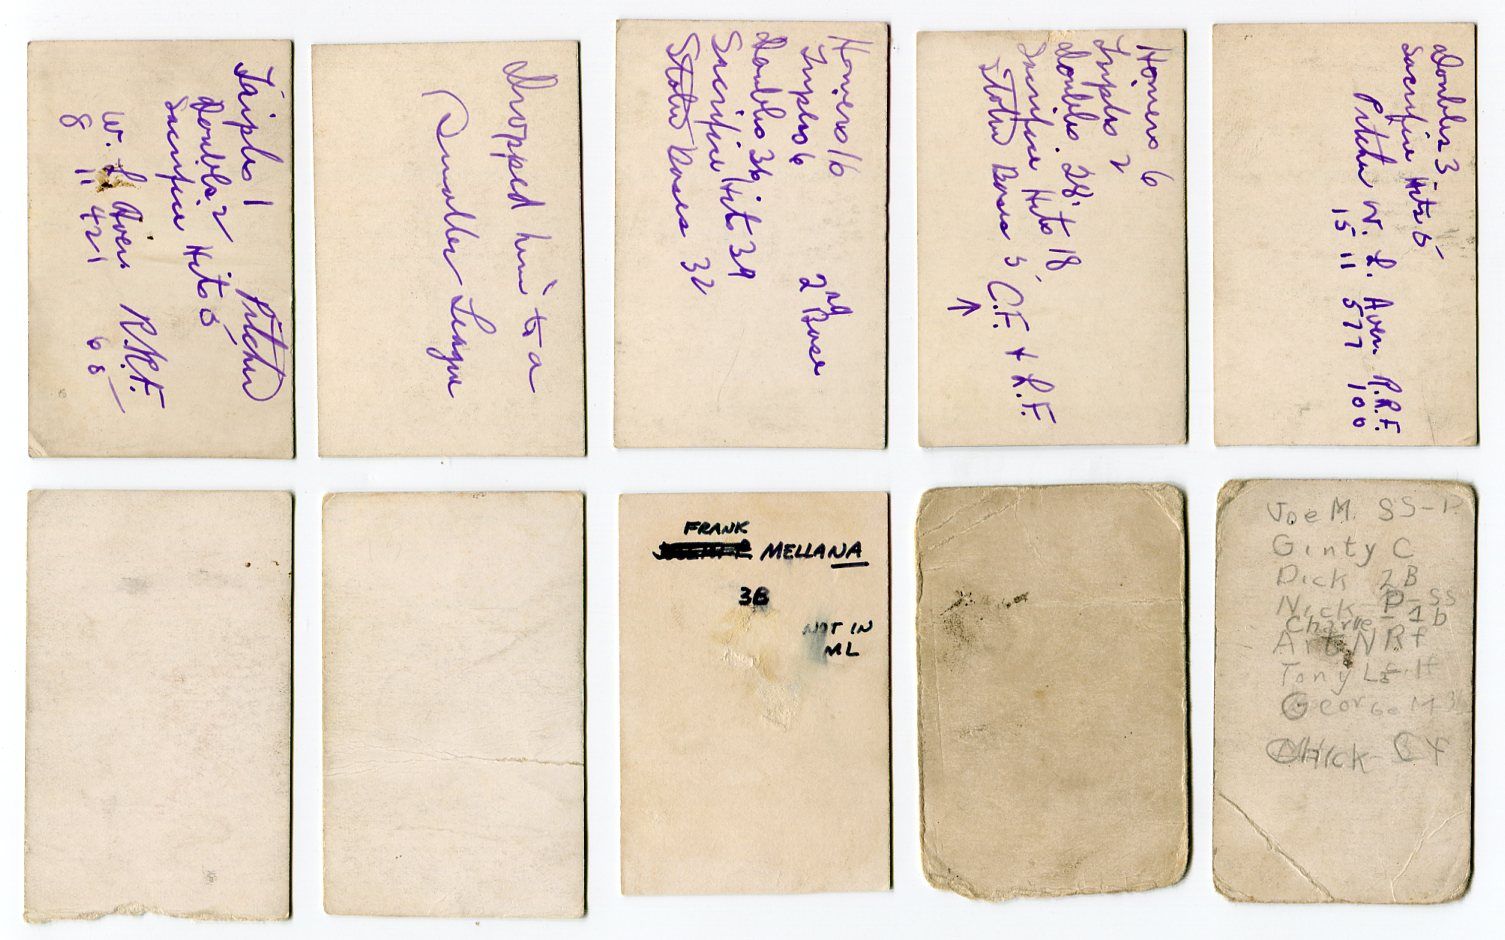 Triples 1
Doubles 2
Sacrifice Hits 5
Pitcher
W. L. Aver. R.R.F.
8 11 421 60
Dropped him to a
Smaller League
Homers 16
Triples 6
Doubles 36
Sacrifice Hits 39
Stolen Bases 32
2nd Base
Homers 6
Triples 2
Doubles 28
Sacrifice Hits 18
Stolen Bases 5
C.F. + L.F.
↑
Doubles 3
Sacrifice Hits 5
Pitcher W. L. Aver. R.R.F.
15 11 577 100
FRANK
MELLANA
3B
NOT IN
ML
Joe M. SS-P
Ginty C
Dick 2B
Nick P-SS
Charlie - 1b
Art N Rf
Tony Lf-
George M 3b
Chick Cf